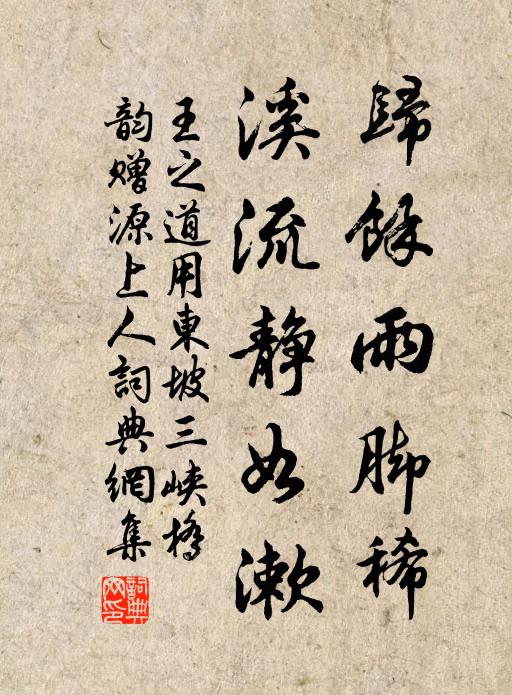 歸餘雨脚稀
溪流靜如漱
王之道用東坡三峽橋
韵贈源上人詞典網集
詞典网印